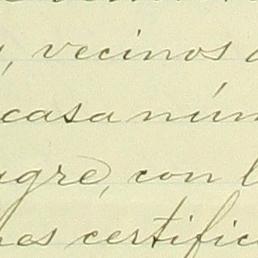 , vecinos
casa núm
agre, con l
nos certific